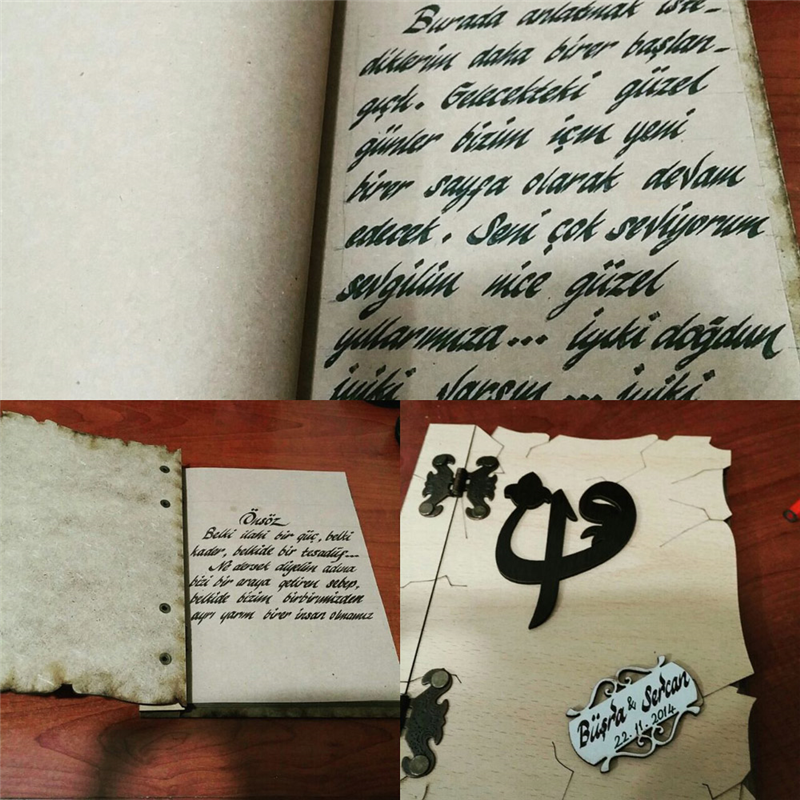 Burada anlatmak iste-
diklerim daha birer başlan-
gıçtı. Gelecekteki güzel
günler bizim için yeni
birer sayfa olarak devam
edecek. Seni çok seviyorum
sevgilim nice güzel
yıllarımıza... iyiki doğdun
iyiki varsın ... iyiki
Önsöz
Belki ilahi bir güç, belki
kader, belkide bir tesadüf...
Ne dersek diyelim adına
bizi bir araya getiren sebep,
belkide bizim birbirimizden
ayrı yarım birer insan olmamız
Büşra & Sercan
22.11.2014